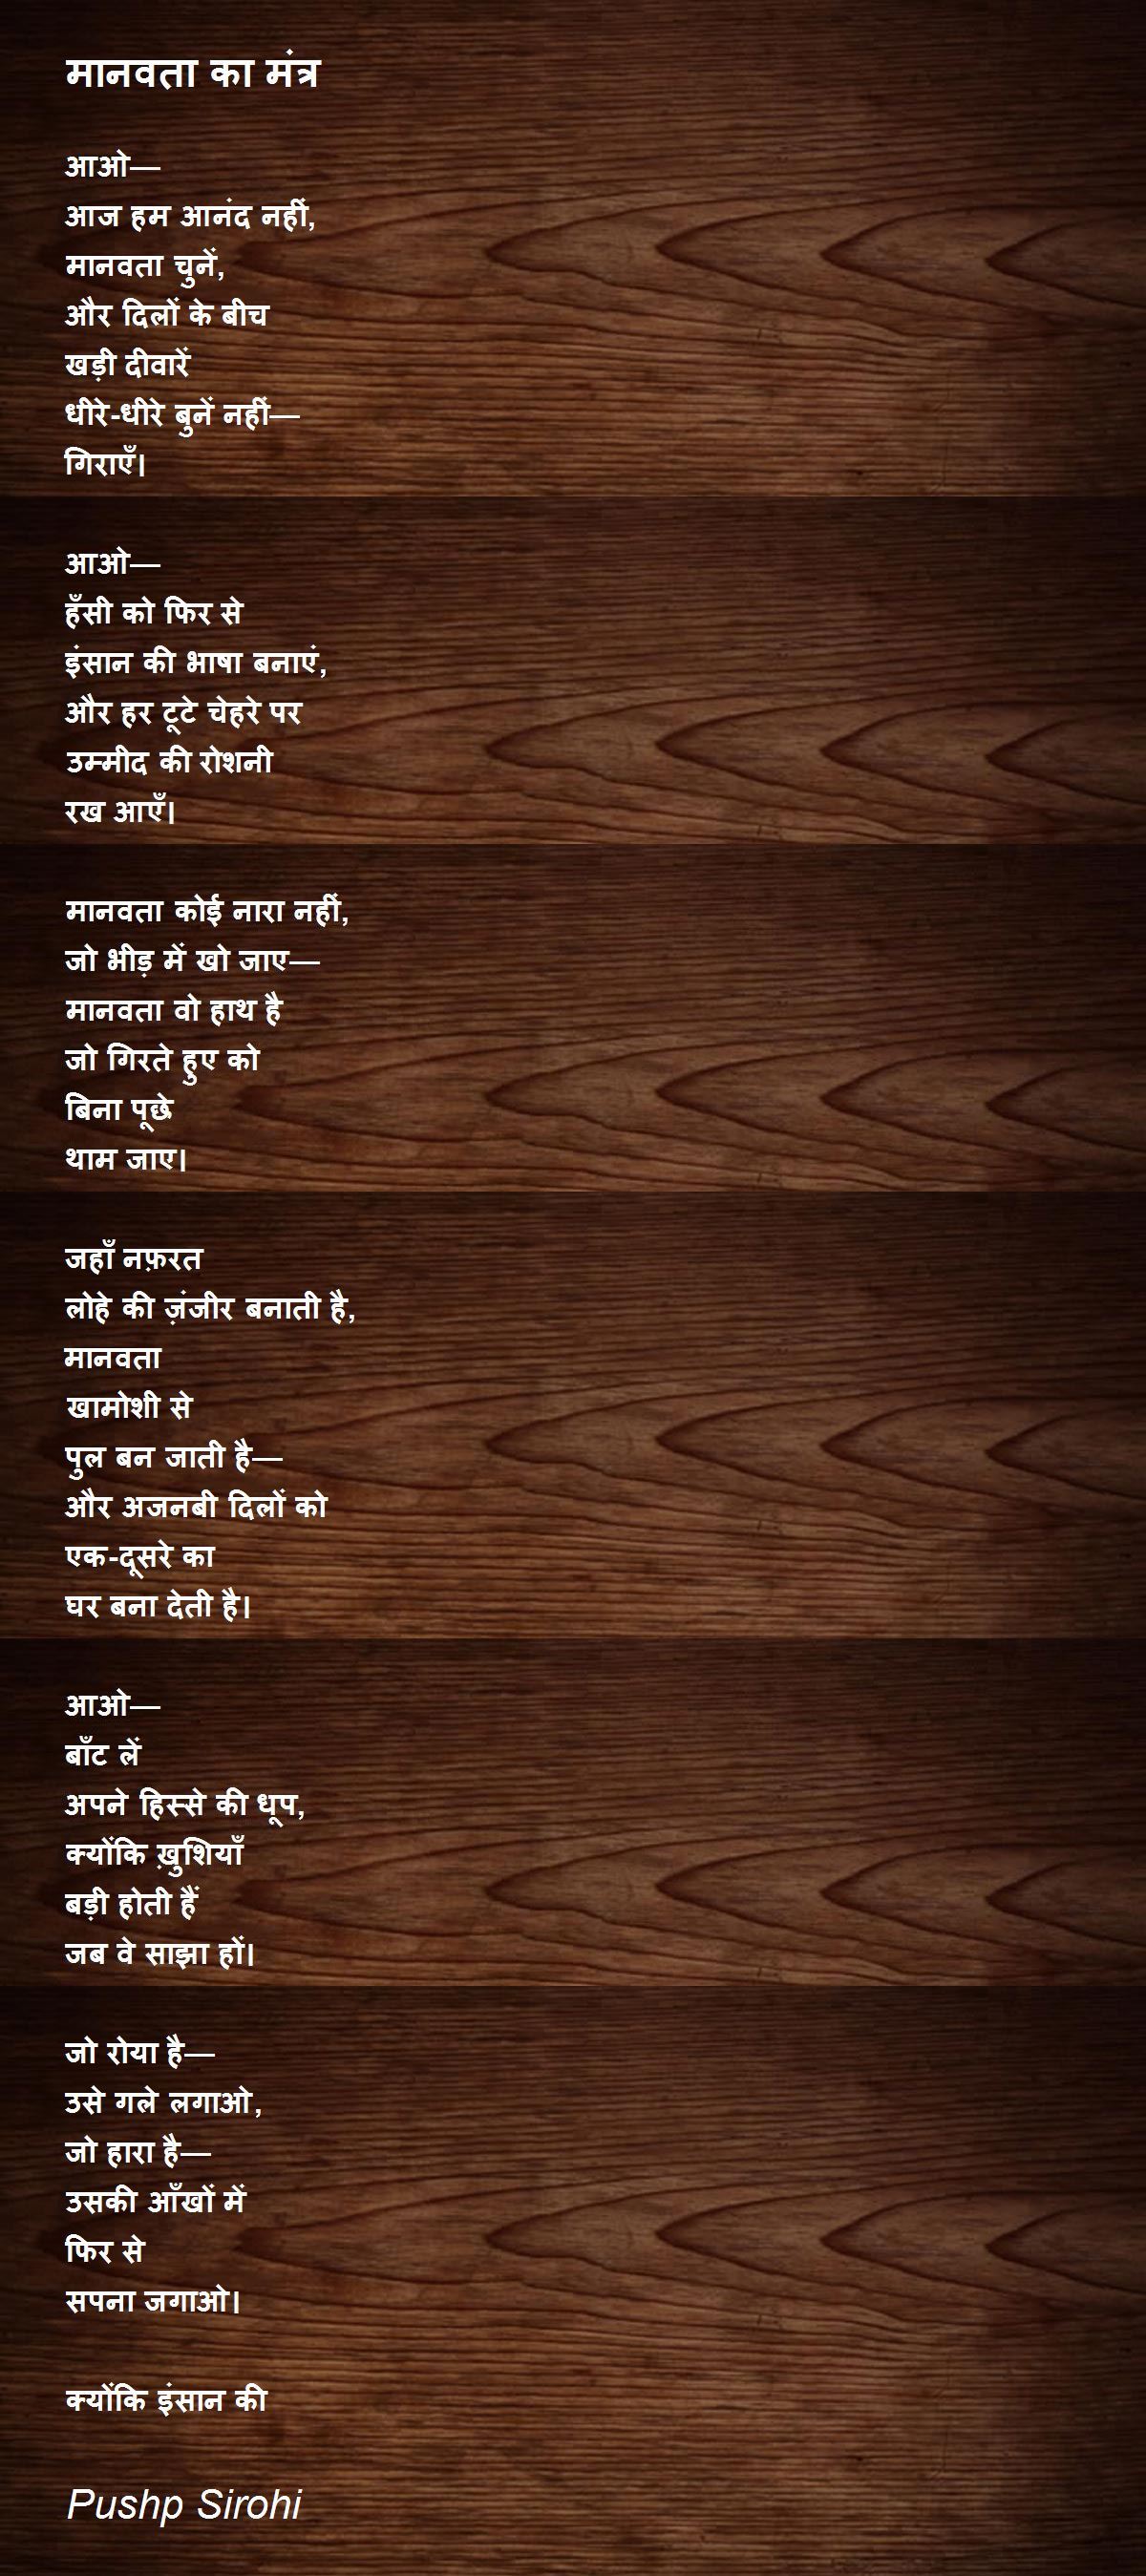 मानवता का मंत्र
आओ—
आज हम आनंद नहीं,
मानवता चुनें,
और दिलों के बीच
खड़ी दीवारें
धीरे-धीरे बुनें नहीं—
गिराएँ।
आओ—
हँसी को फिर से
इंसान की भाषा बनाएं,
और हर टूटे चेहरे पर
उम्मीद की रोशनी
रख आएँ।
मानवता कोई नारा नहीं,
जो भीड़ में खो जाए—
मानवता वो हाथ है
जो गिरते हुए को
बिना पूछे
थाम जाए।
जहाँ नफ़रत
लोहे की ज़ंजीर बनाती है,
मानवता
खामोशी से
पुल बन जाती है—
और अजनबी दिलों को
एक-दूसरे का
घर बना देती है।
आओ—
बाँट लें
अपने हिस्से की धूप,
क्योंकि ख़ुशियाँ
बड़ी होती हैं
जब वे साझा हों।
जो रोया है—
उसे गले लगाओ,
जो हारा है—
उसकी आँखों में
फिर से
सपना जगाओ।
क्योंकि इंसान की
Pushp Sirohi